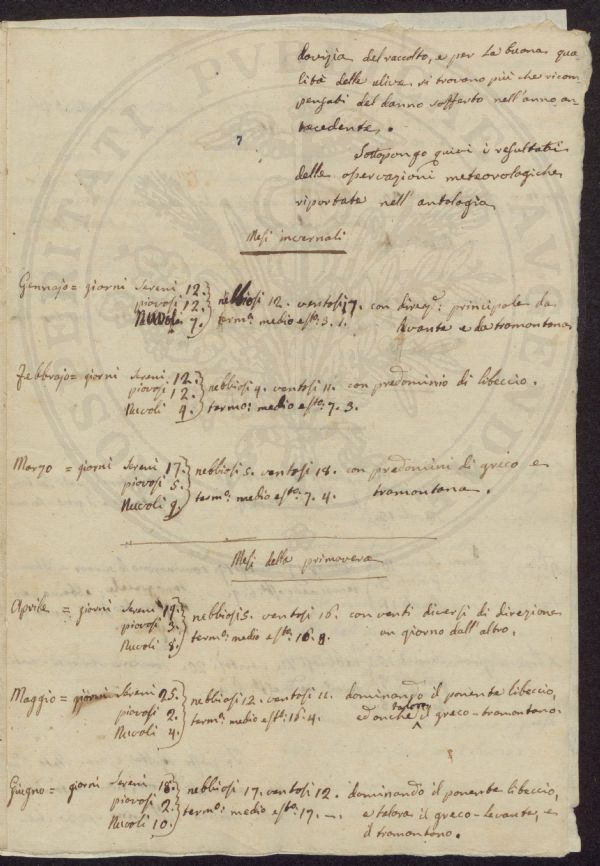 dovizia del raccolto, e per la buona qua-
lità delle olive si trovano più che ricom-
pensati del danno sofferto nell'anno an-
tecedente.
Sottopongo quivi i resultati
delle osservazioni meteorologiche
riportate nell'antologia
Mesi invernali
Gennajo = giorni Sereni 12. nebbiosi 12. ventosi 17. con direz.: principale da
piovosi 12. term.o medio est.o: 3. 1. levante e da tramontana
Nuvoli 7.
Febbrajo = giorni Sereni 12. nebbiosi 4. ventosi 11. con predominio di libeccio.
piovosi 12. termo: medio est.o: 7. 3.
Nuvoli 4.
Marzo = giorni Sereni 17. nebbiosi 5. ventosi 18. con predominj di greco e
piovosi 5. term.o: medio est.o: 7. 4. tramontana.
Nuvoli 9.
Mesi della primavera
Aprile = giorni Sereni 19. nebbiosi 5. ventosi 16. con venti diversi di direzione
piovosi 3. term.o: medio est.o: 16. 8. un giorno dall'altro.
Nuvoli 8.
Maggio = giorni Sereni 25. nebbiosi 12. ventosi 11. dominando il ponente libeccio,
piovosi 2. term.o: medio est.o: 16. 4. ed anche talora il greco-tramontano.
Nuvoli 4.
Giugno = giorni Sereni 18. nebbiosi 17. ventosi 12. dominando il ponente libeccio,
piovosi 2. termo: medio est.o: 17. —. e talora il greco-levante, e
Nuvoli 10. il tramontano.